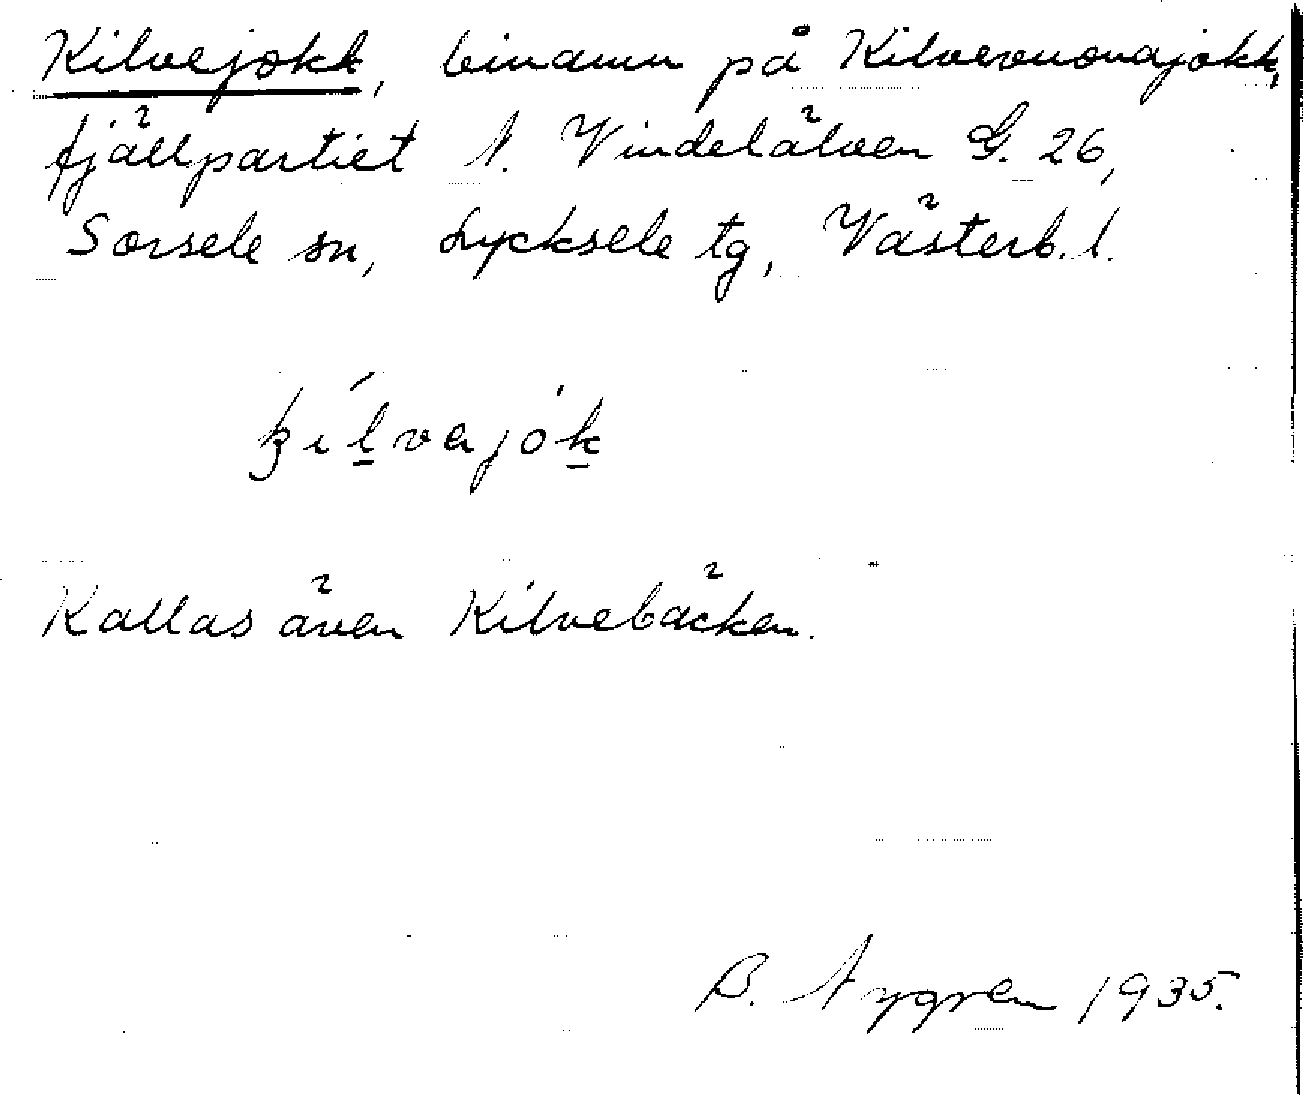 Kilvejokk, binamn på Kilvevuomajokk,
fjällpartiet N. Vindelälven G. 26,
Sorsele sn, Lycksele tg, Västerb. l.
kilvajók
Kallas även Kilvebäcken.
B. Nygren 1935.